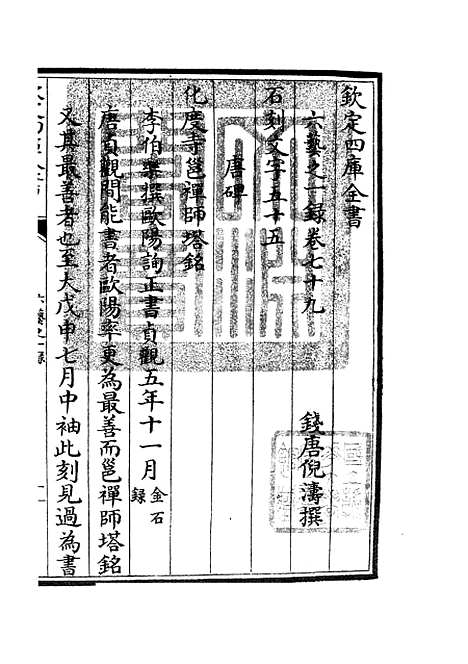 欽定四庫全書
六藝之一錄卷七十九
錢唐倪濤撰
石刻文字五十五
唐碑
化度寺邕禪師塔銘
李伯藥撰歐陽詢正書貞觀五年十一月金石錄
唐貞觀間能書者歐陽率更為最善而邕禪師塔銘
又其最善者也至大戊申七月中袖此刻見過為書
六藝之一錄